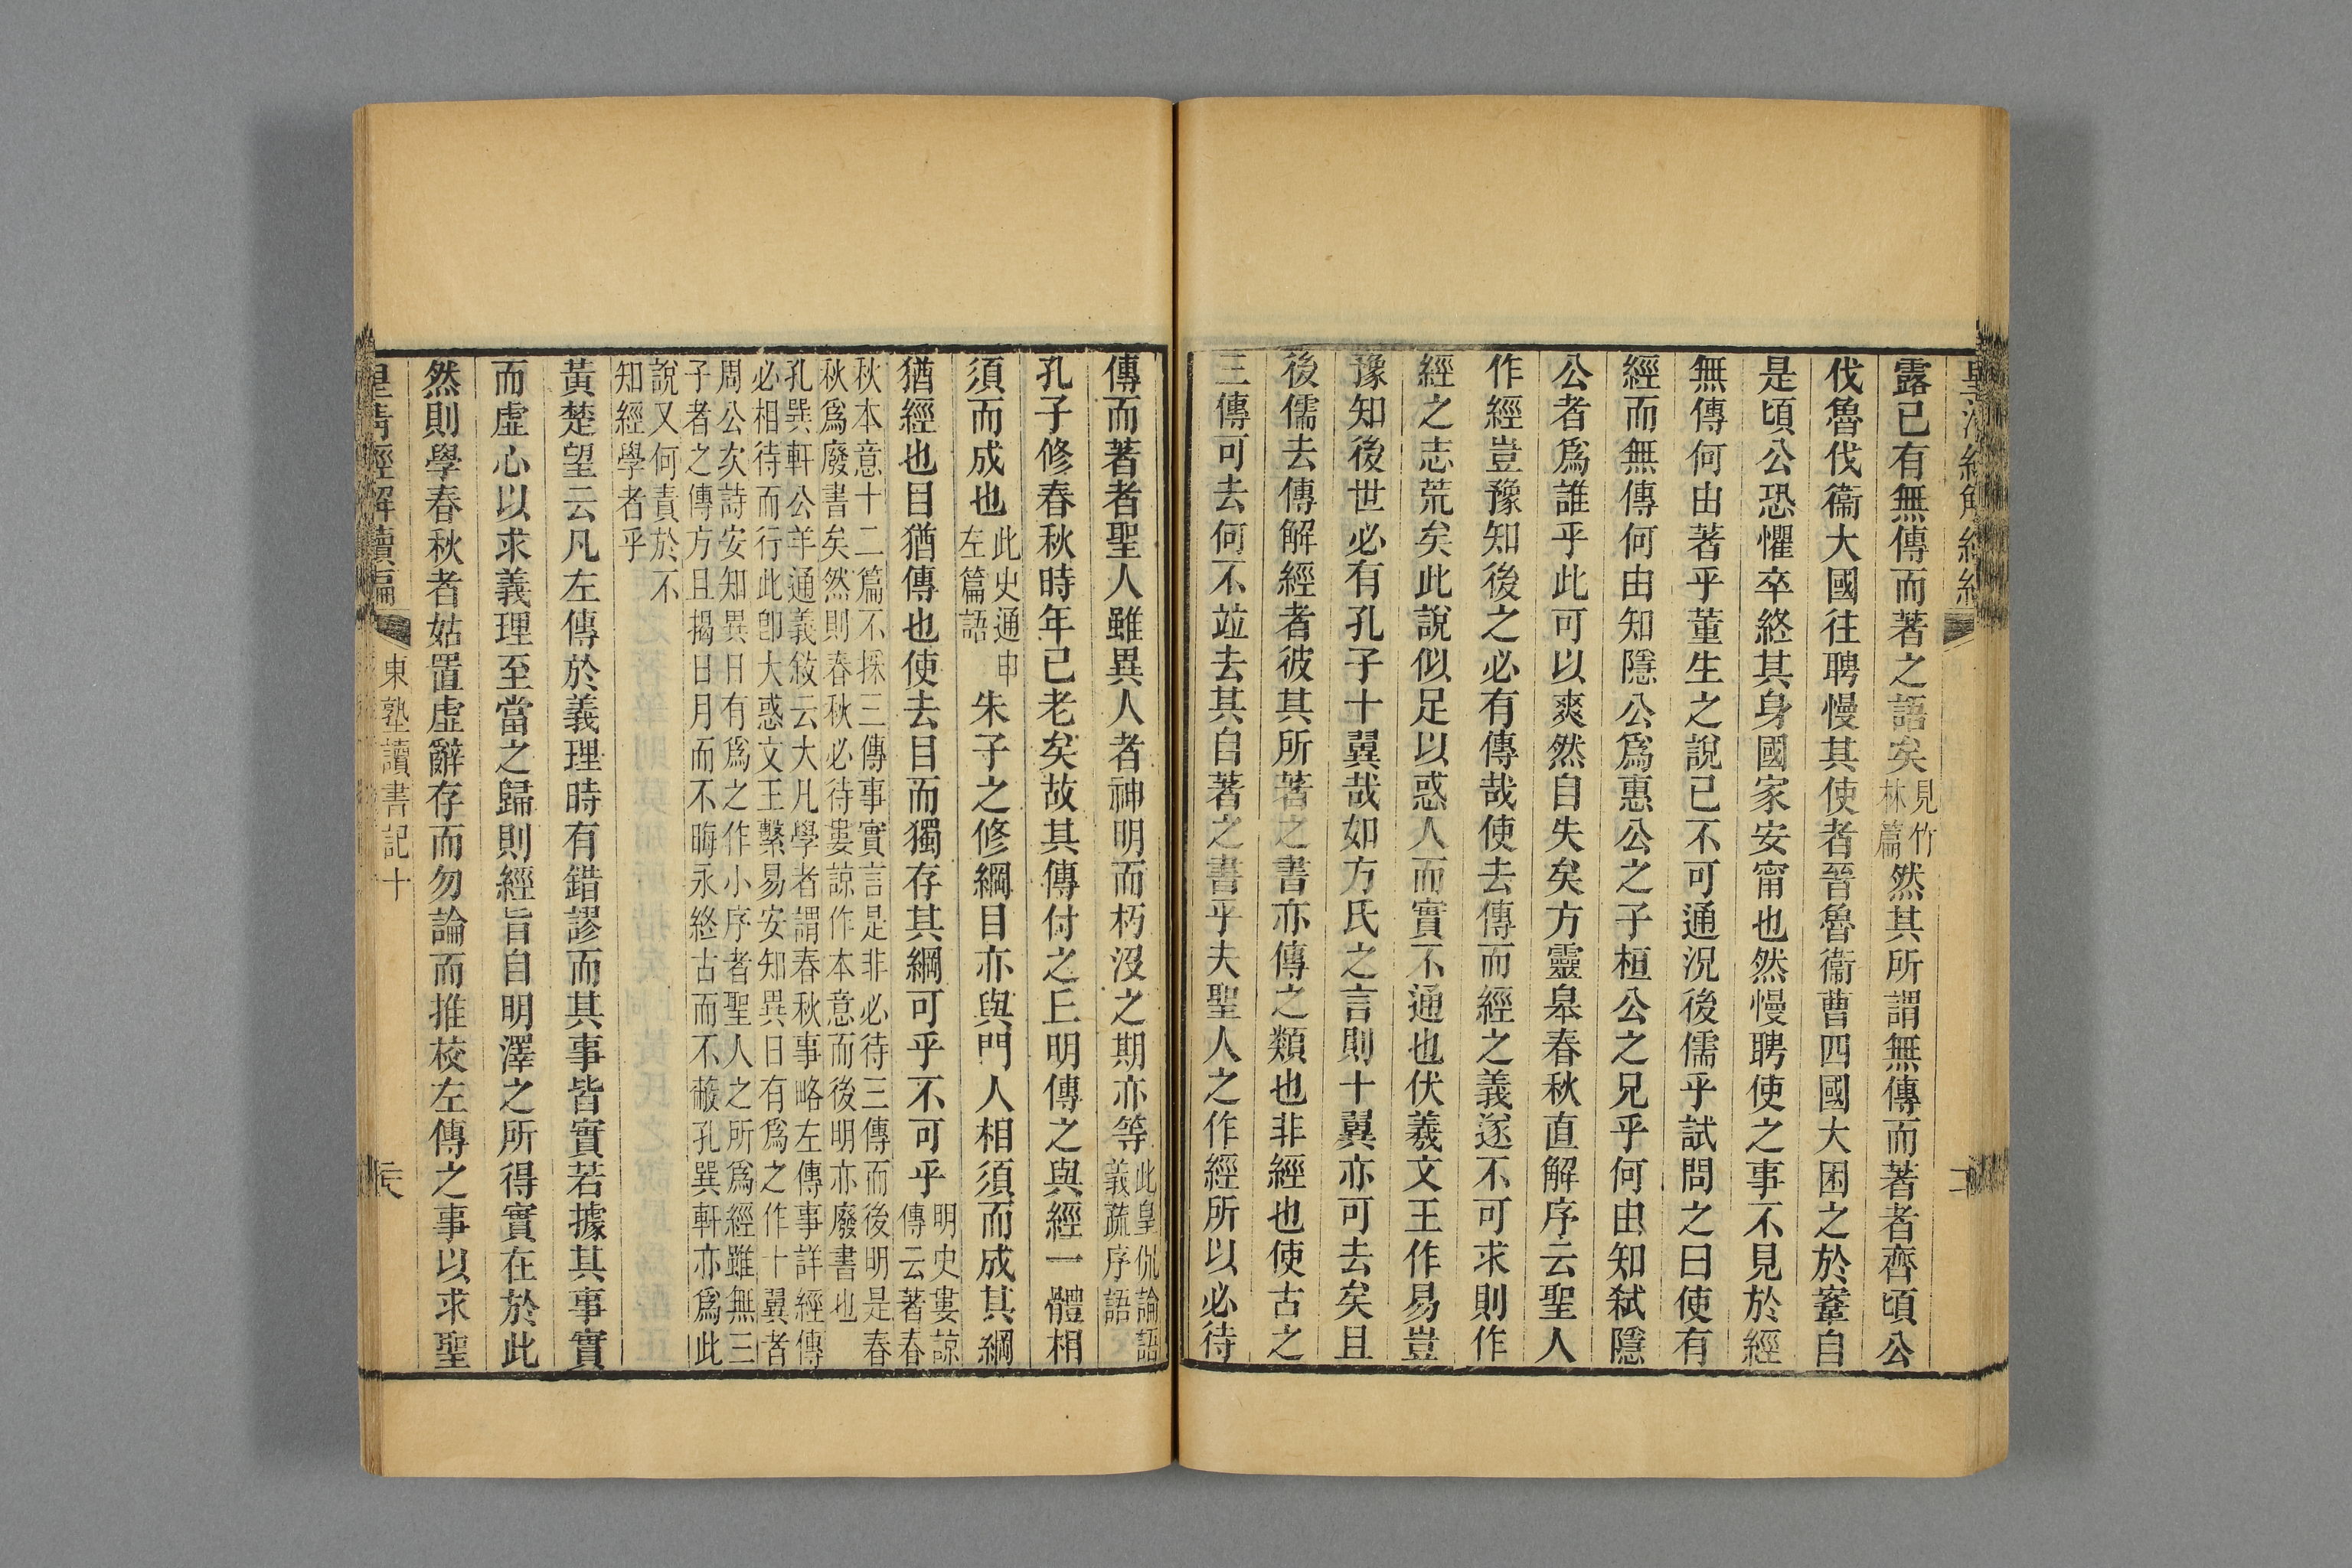 露已有無傳而著之語矣見竹林篇然其所謂無傳而著者齊頃公
伐魯伐衞大國往聘慢其使者晉魯衞曹四國大困之於鞌自
是頃公恐懼卒終其身國家安甯也然慢聘使之事不見於經
無傳何由著乎董生之說已不可通況後儒乎試問之曰使有
經而無傳何由知隱公爲惠公之子桓公之兄乎何由知弑隱
公者爲誰乎此可以爽然自失矣方靈皋春秋直解序云聖人
作經豈豫知後之必有傳哉使去傳而經之義遂不可求則作
經之志荒矣此說似足以惑人而實不通也伏羲文王作易豈
豫知後世必有孔子十翼哉如方氏之言則十翼亦可去矣且
後儒去傳解經者彼其所著之書亦傳之類也非經也使古之
三傳可去何不竝去其自著之書乎夫聖人之作經所以必待
傳而著者聖人雖異人者神明而朽沒之期亦等此皇侃論語義疏序語
孔子修春秋時年已老矣故其傳付之丘明傳之與經一體相
須而成也此史通申左篇語朱子之修綱目亦與門人相須而成其綱
猶經也目猶傳也使去目而獨存其綱可乎不可乎明史婁諒傳云著春
秋本意十二篇不採三傳事實言是非必待三傳而後明是春
秋爲廢書矣然則春秋必待婁諒作本意而後明亦廢書也
孔巽軒公羊通義敍云大凡學者謂春秋事略左傳事詳經傳
必相待而行此卽大惑文王繫易安知異日有爲之作十翼者
周公次詩安知異日有爲之作小序者聖人之所爲經雖無三
子者之傳方且揭日月而不晦永終古而不蔽孔巽軒亦爲此
說又何責於不
知經學者乎
黃楚望云凡左傳於義理時有錯謬而其事皆實若據其事實
而虛心以求義理至當之歸則經旨自明澤之所得實在於此
然則學春秋者姑置虛辭存而勿論而推校左傳之事以求聖
皇淸經解續編
東塾讀書記十